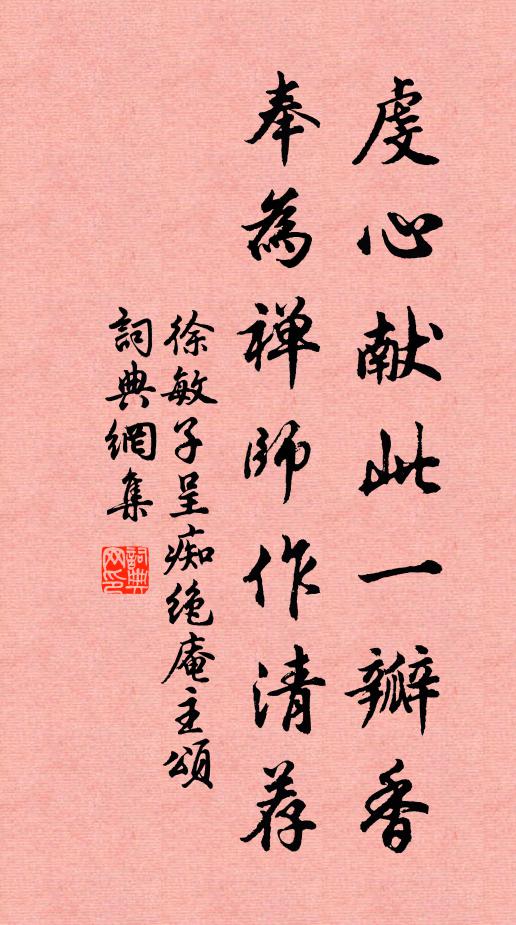 虔心献此一瓣香
奉為禅师作清荐
徐敏子呈痴绝庵主頌
詞典網集
詞典網印